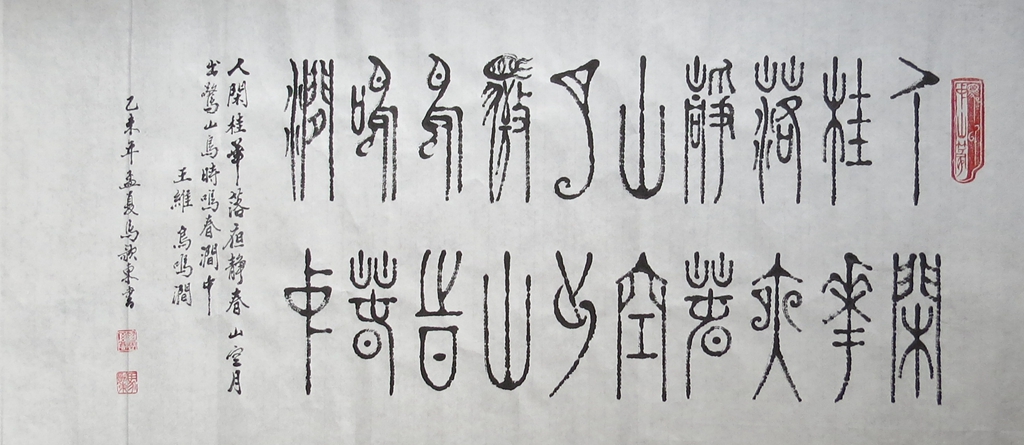 人閑
桂華
落夜
靜春
山空
月出
驚山
鳥時
鳴春
澗中
人閑桂華落夜静春山空月
出驚山鳥時鳴春澗中
王維鳥鳴澗
乙未年孟夏